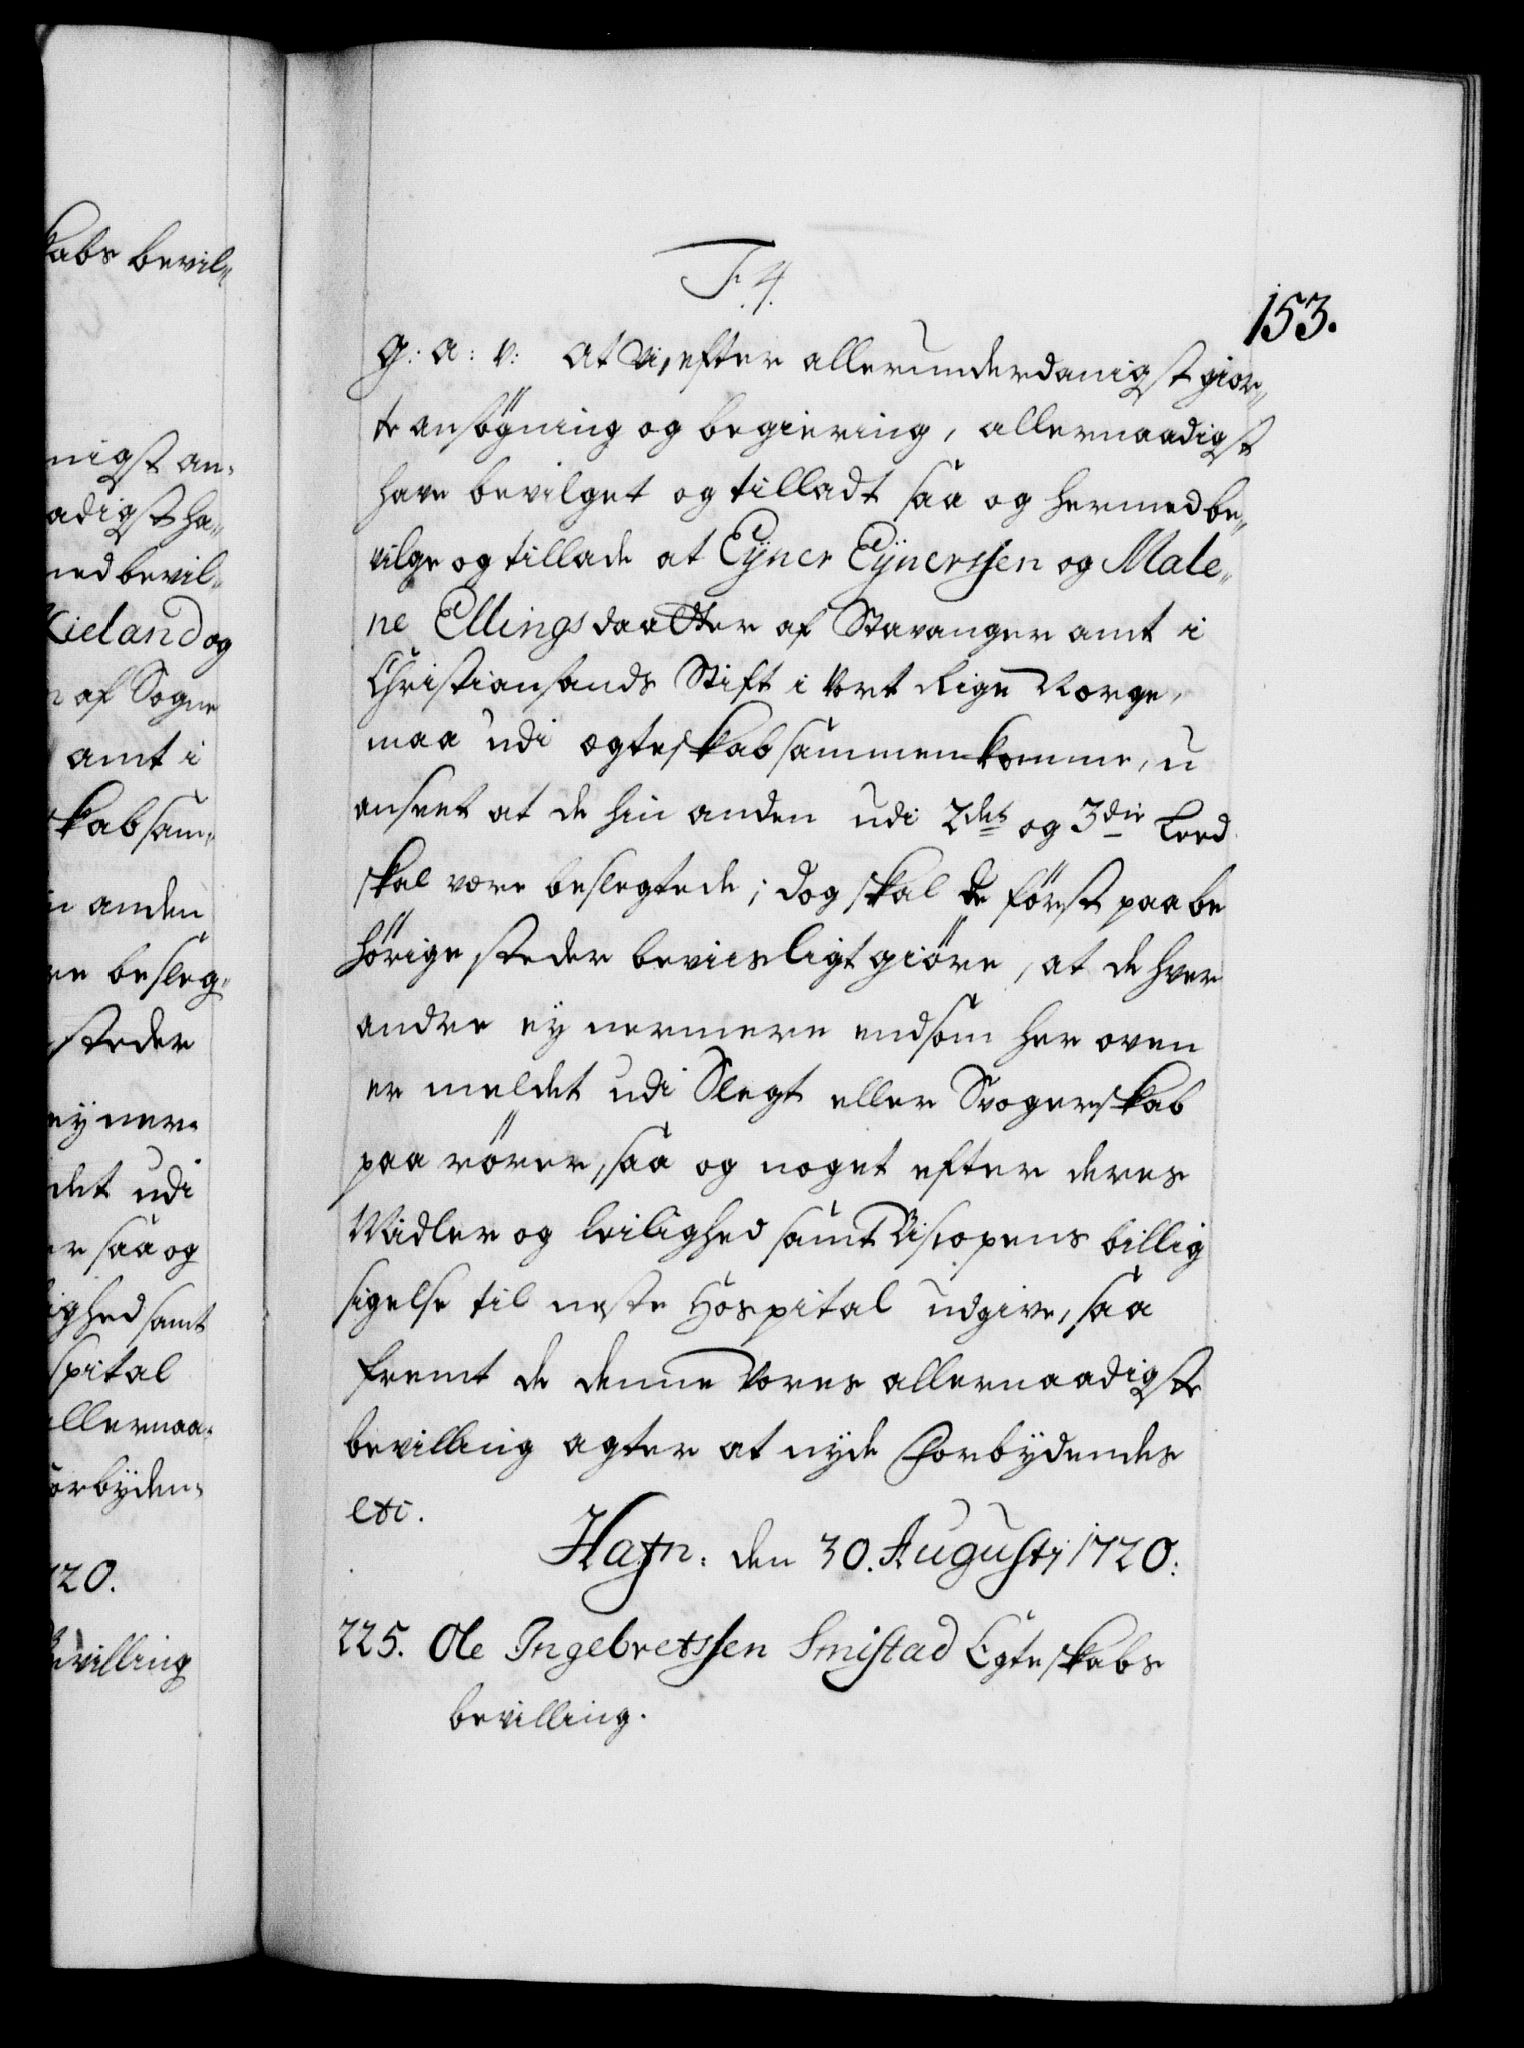 kabs bevil„
nigst an„
adigst ha„
med bevil„
Kieland og
n af Sogne
amt i
skab sam„
n anden
re besleg„
steder
ey ner„
det udi
er saa og
ighed samt
spital
allernaa„
forbyden„
720.
Bevilling
153.
F. 4.
g: a: v: At Vi, efter allerunderdanigst gior„
te ansögning og begiering, allernaadigst
have bevilget og tilladt saa og hermed be„
vilge og tillade at Eÿner Eÿnerssen og Male„
ne Ellingsdaatter af Stavanger amt i
Christiansands Stift i Vort Rige Norge,
maa udi ægteskab sammenkomme, u
anseet at de hin anden udi 2det og 3die Leed
skal være beslegtede; dog skal de först paa be
hörige steder bevisligt giöre, at de hver
andre ey nermere end som her oven
er meldet udi Slegt eller Svogerskab
paarörer, saa og noget efter deres
Midler og leilighed samt Biscopens billig
sigelse til neste Hospital udgive, saa
fremt de denne Vores allernaadigste
bevilling agter at nyde Forbydendes
etc.
Hafn: den 30. Augusti 1720:
225. Ole Ingebretssen Smistad Egteskabs
bevilling.